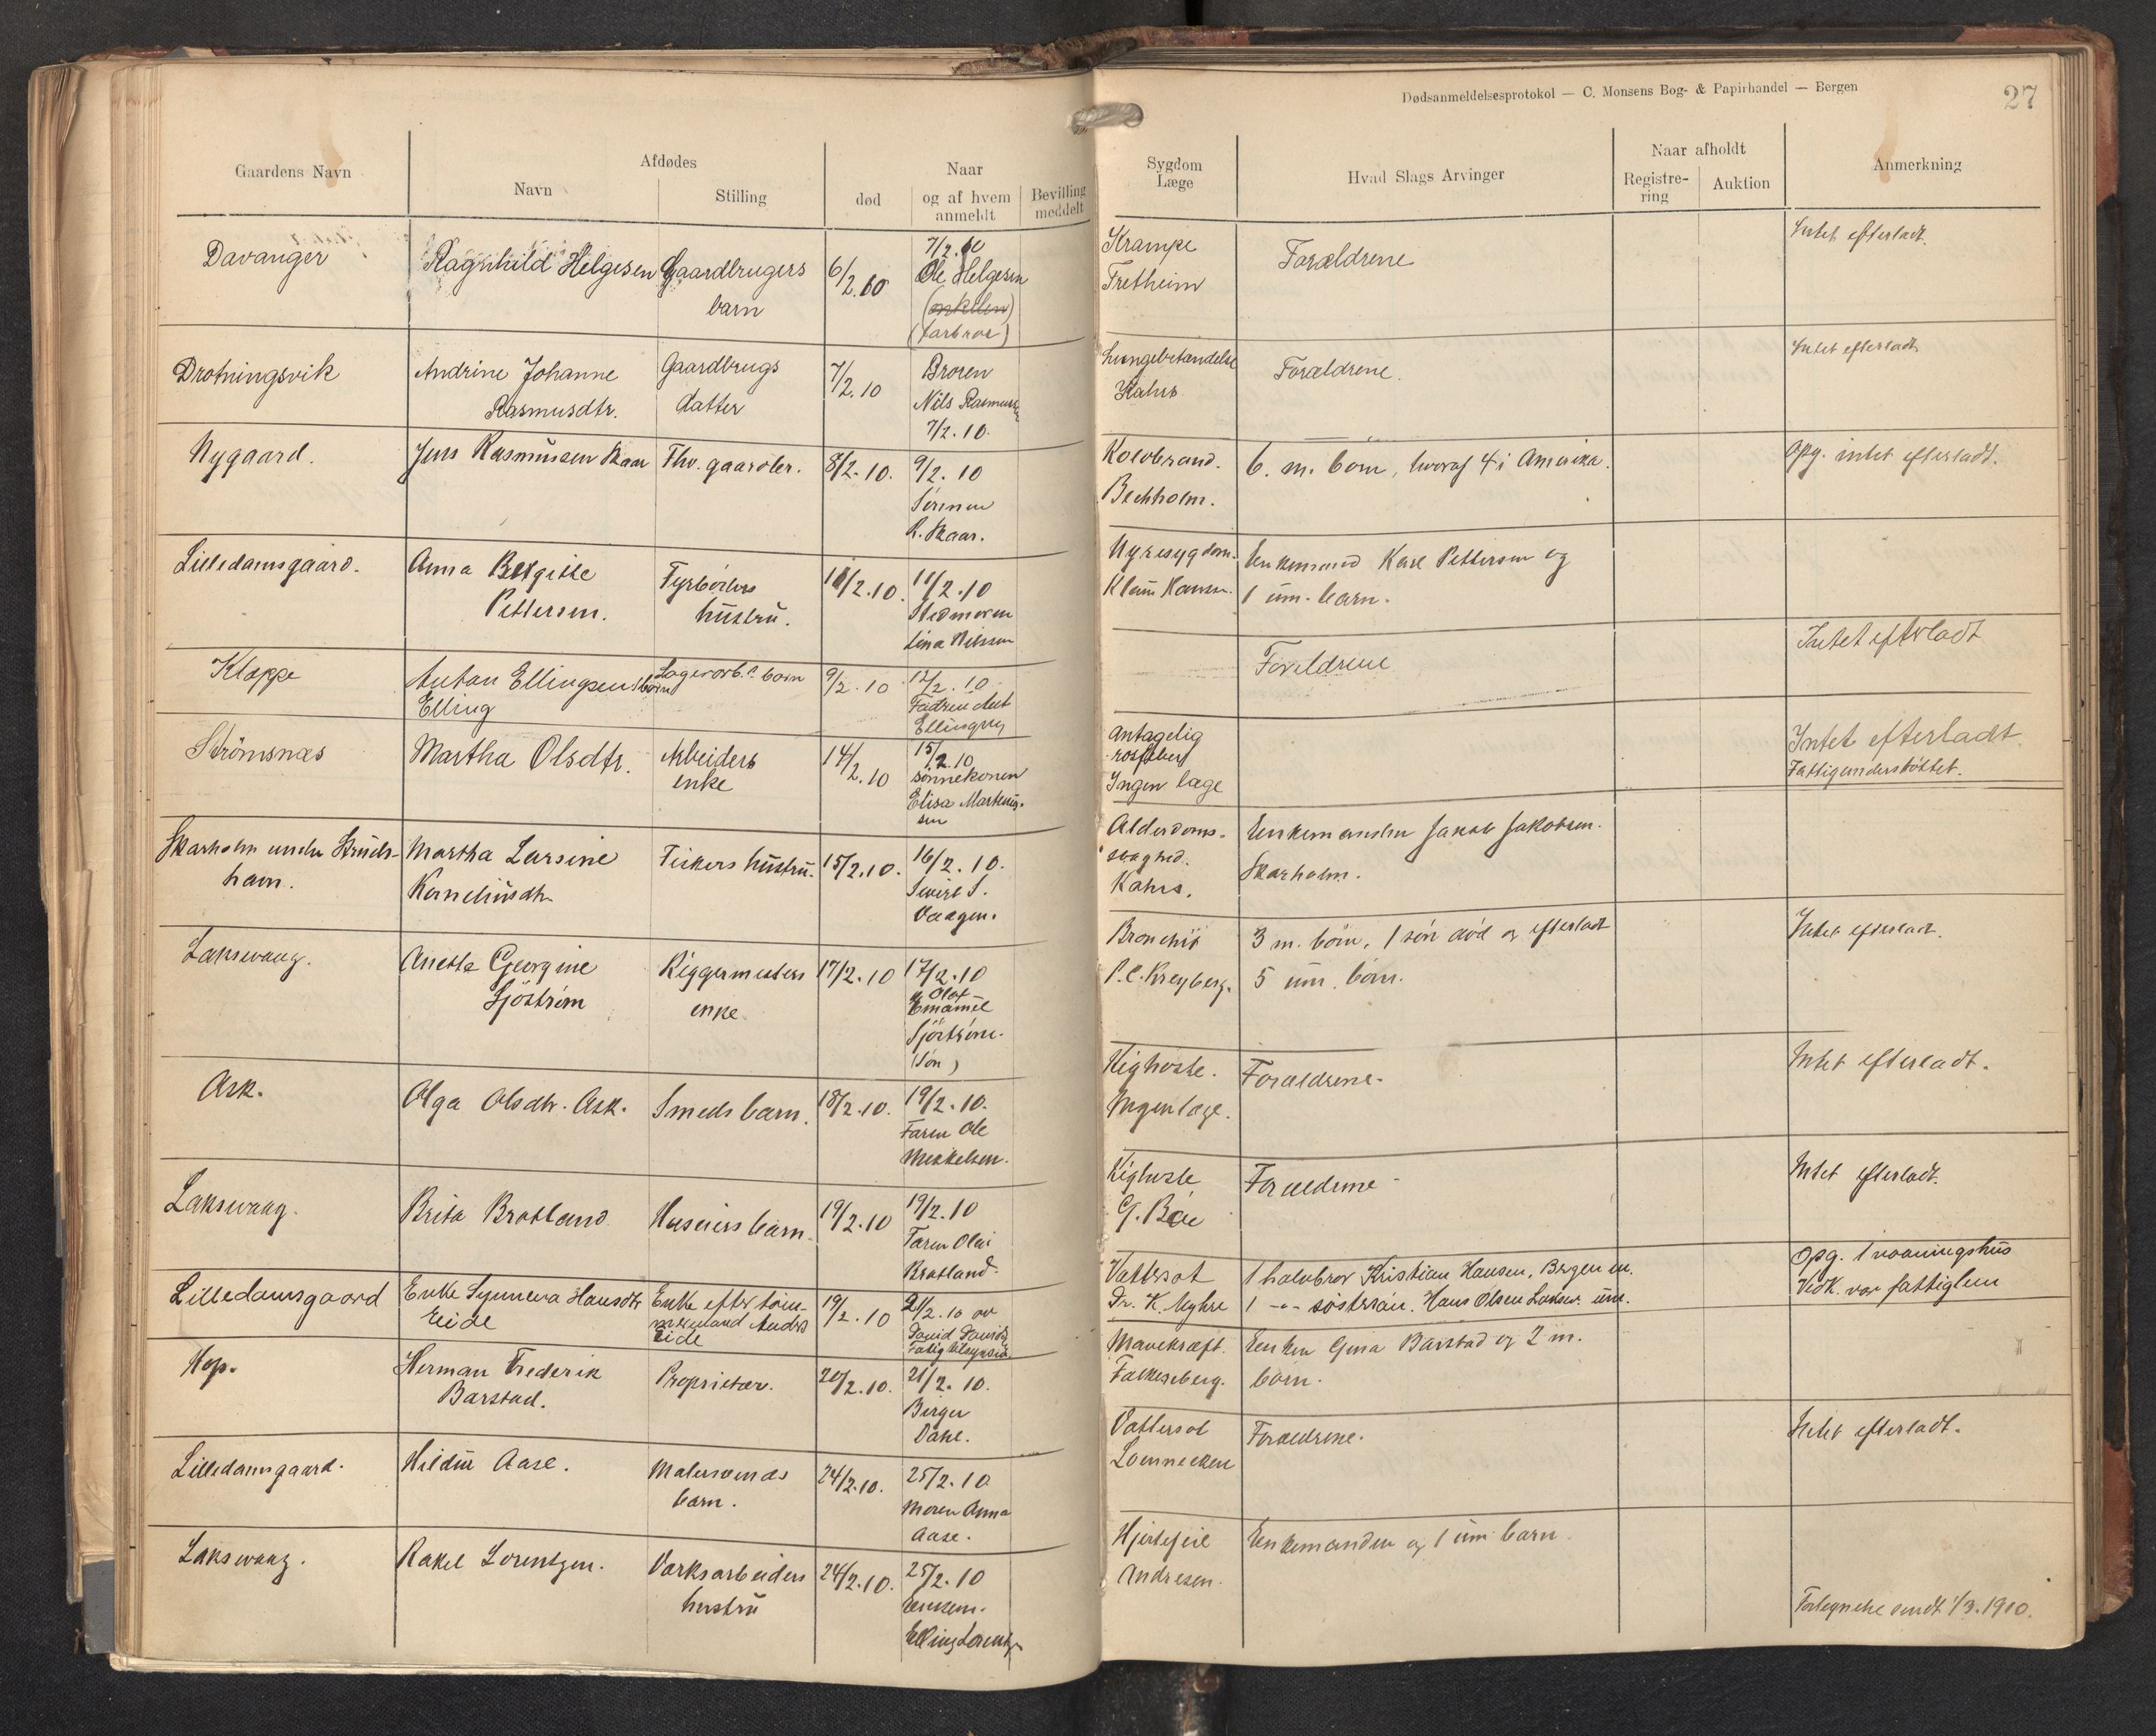 Dødsanmeldelsesprotokol — C. Monsens Bog- & Papirhandel — Bergen
27
Gaardens Navn
Afdødes
Navn
Stilling
død
Naar
og af hvem
anmeldt
Bevilling
meddelt
Sygdom
Læge
Hvad Slags Arvinger
Naar afholdt
Registre-
ring
Auktion
Anmerkning
Davanger
Ragnhild Helgesen
Gaardbrugers
barn
6/2.10
7/2.10
Ole Helgesen
(onkelen)
(farbror)
Krampe
Fretheim
Forældrene
Intet efterladt.
Drotningsvik
Andrine Johanne
Rasmusdtr.
Gaardbrugs
datter
7/2.10
Broren
Nils Rasmussen
7/2.10.
Lungebetændelse
Kahrs
Forældrene.
Intet efterladt
Nygaard.
Jens Rasmussen Skaar
Fhv. gaardbr.
8/2.10.
9/2.10
Sønnen
R. Skaar.
Koldbrand.
Bechholm.
6. m. børn, hvoraf 4 i Amerika.
Opg. intet efterladt.
Lilledamsgaard.
Anna Birgitte
Pettersen.
Fyrbøters
hustru.
10/2.10.
11/2.10
Stedmoren
Lina Nilssen
Nyresygdom.
Klaus Hansen.
Enkemand Karl Pettersen og
1 um. barn.
Kleppe
Anton Ellingsen's barn
Elling
Lagerarb.s barn
9/2.10
12/2.10
Fadren Ant
Ellingsen
Foreldrene
Intet efterladt
Strömsnæs
Martha Olsdtr.
Arbeiders
enke
14/2.10
15/2.10
sønnekonen
Elisa Martinus-
sen
Antagelig
Ingen læge
Intet efterladt
Fattigunderstöttet.
Skarholm under
havn.
Martha Larsine
Korneliusdtr.
Fiskers hustru.
15/2.10.
16/2.10.
Sivert S.
Vaagen.
Alderdoms-
svaghed.
Kahrs.
Enkemanden Jakob Jakobsen.
Skarholm.
Laksevaag.
Anette Georgine
Sjöström
Riggermesters
enke
17/2.10
17/2.10
Olaf
Emanuel
Sjöström.
(Søn)
Bronchit
P.C. Kreyberg.
3 m. børn, 1 søn død og efterladt
5 um. børn.
Intet efterladt.
Ask.
Olga Olsdtr. Ask.
Smeds barn.
18/2.10.
19/2.10.
Faren Ole
Mikkelsen.
Kighoste.
Ingen læge.
Forældrene.
Intet efterladt.
Laksevaag.
Brita Bratland
Huseiers barn.
19/2.10
19/2.10
Faren Olai
Bratland.
Kighoste
G. Bøe
Forældrene
Intet efterladt.
Lilledamsgaard
Enke Synneva Hansdtr
Eide
Enke efter tøm-
mermand Anders
Eide
19/2.10
21/2.10 av
David Davids
Fattigtilsynsm.
Vattersot
Dr. K. Myhre
1 halvbror Kristian Hansen, Bergen m.
1 -"- søstersøn. Hans Olsen Laksev. um.
Opg. 1 vaaningshus
Vedk. var fattiglem
Hop.
Herman Frederik
Barstad.
Proprietær.
20/2.10.
21/2.10.
Birger
Dahl.
Mavekræft.
Falkenberg.
Enken Gina Barstad og 2 m.
børn.
Lilledamsgaard.
Hildur Aase.
Malersvends
barn.
24/2.10.
25/2.10
Moren Anna
Aase.
Vattersot
Lonnecken
Forældrene.
Intet efterladt.
Laksevaag.
Rakel Lorentzen.
Værksarbeiders
hustru
24/2.10.
25/2.10
Enkem.
Elling Lorentzen
Hjertefeil
Andresen.
Enkemanden og 1 um. barn.
sendt 1/3.1910.